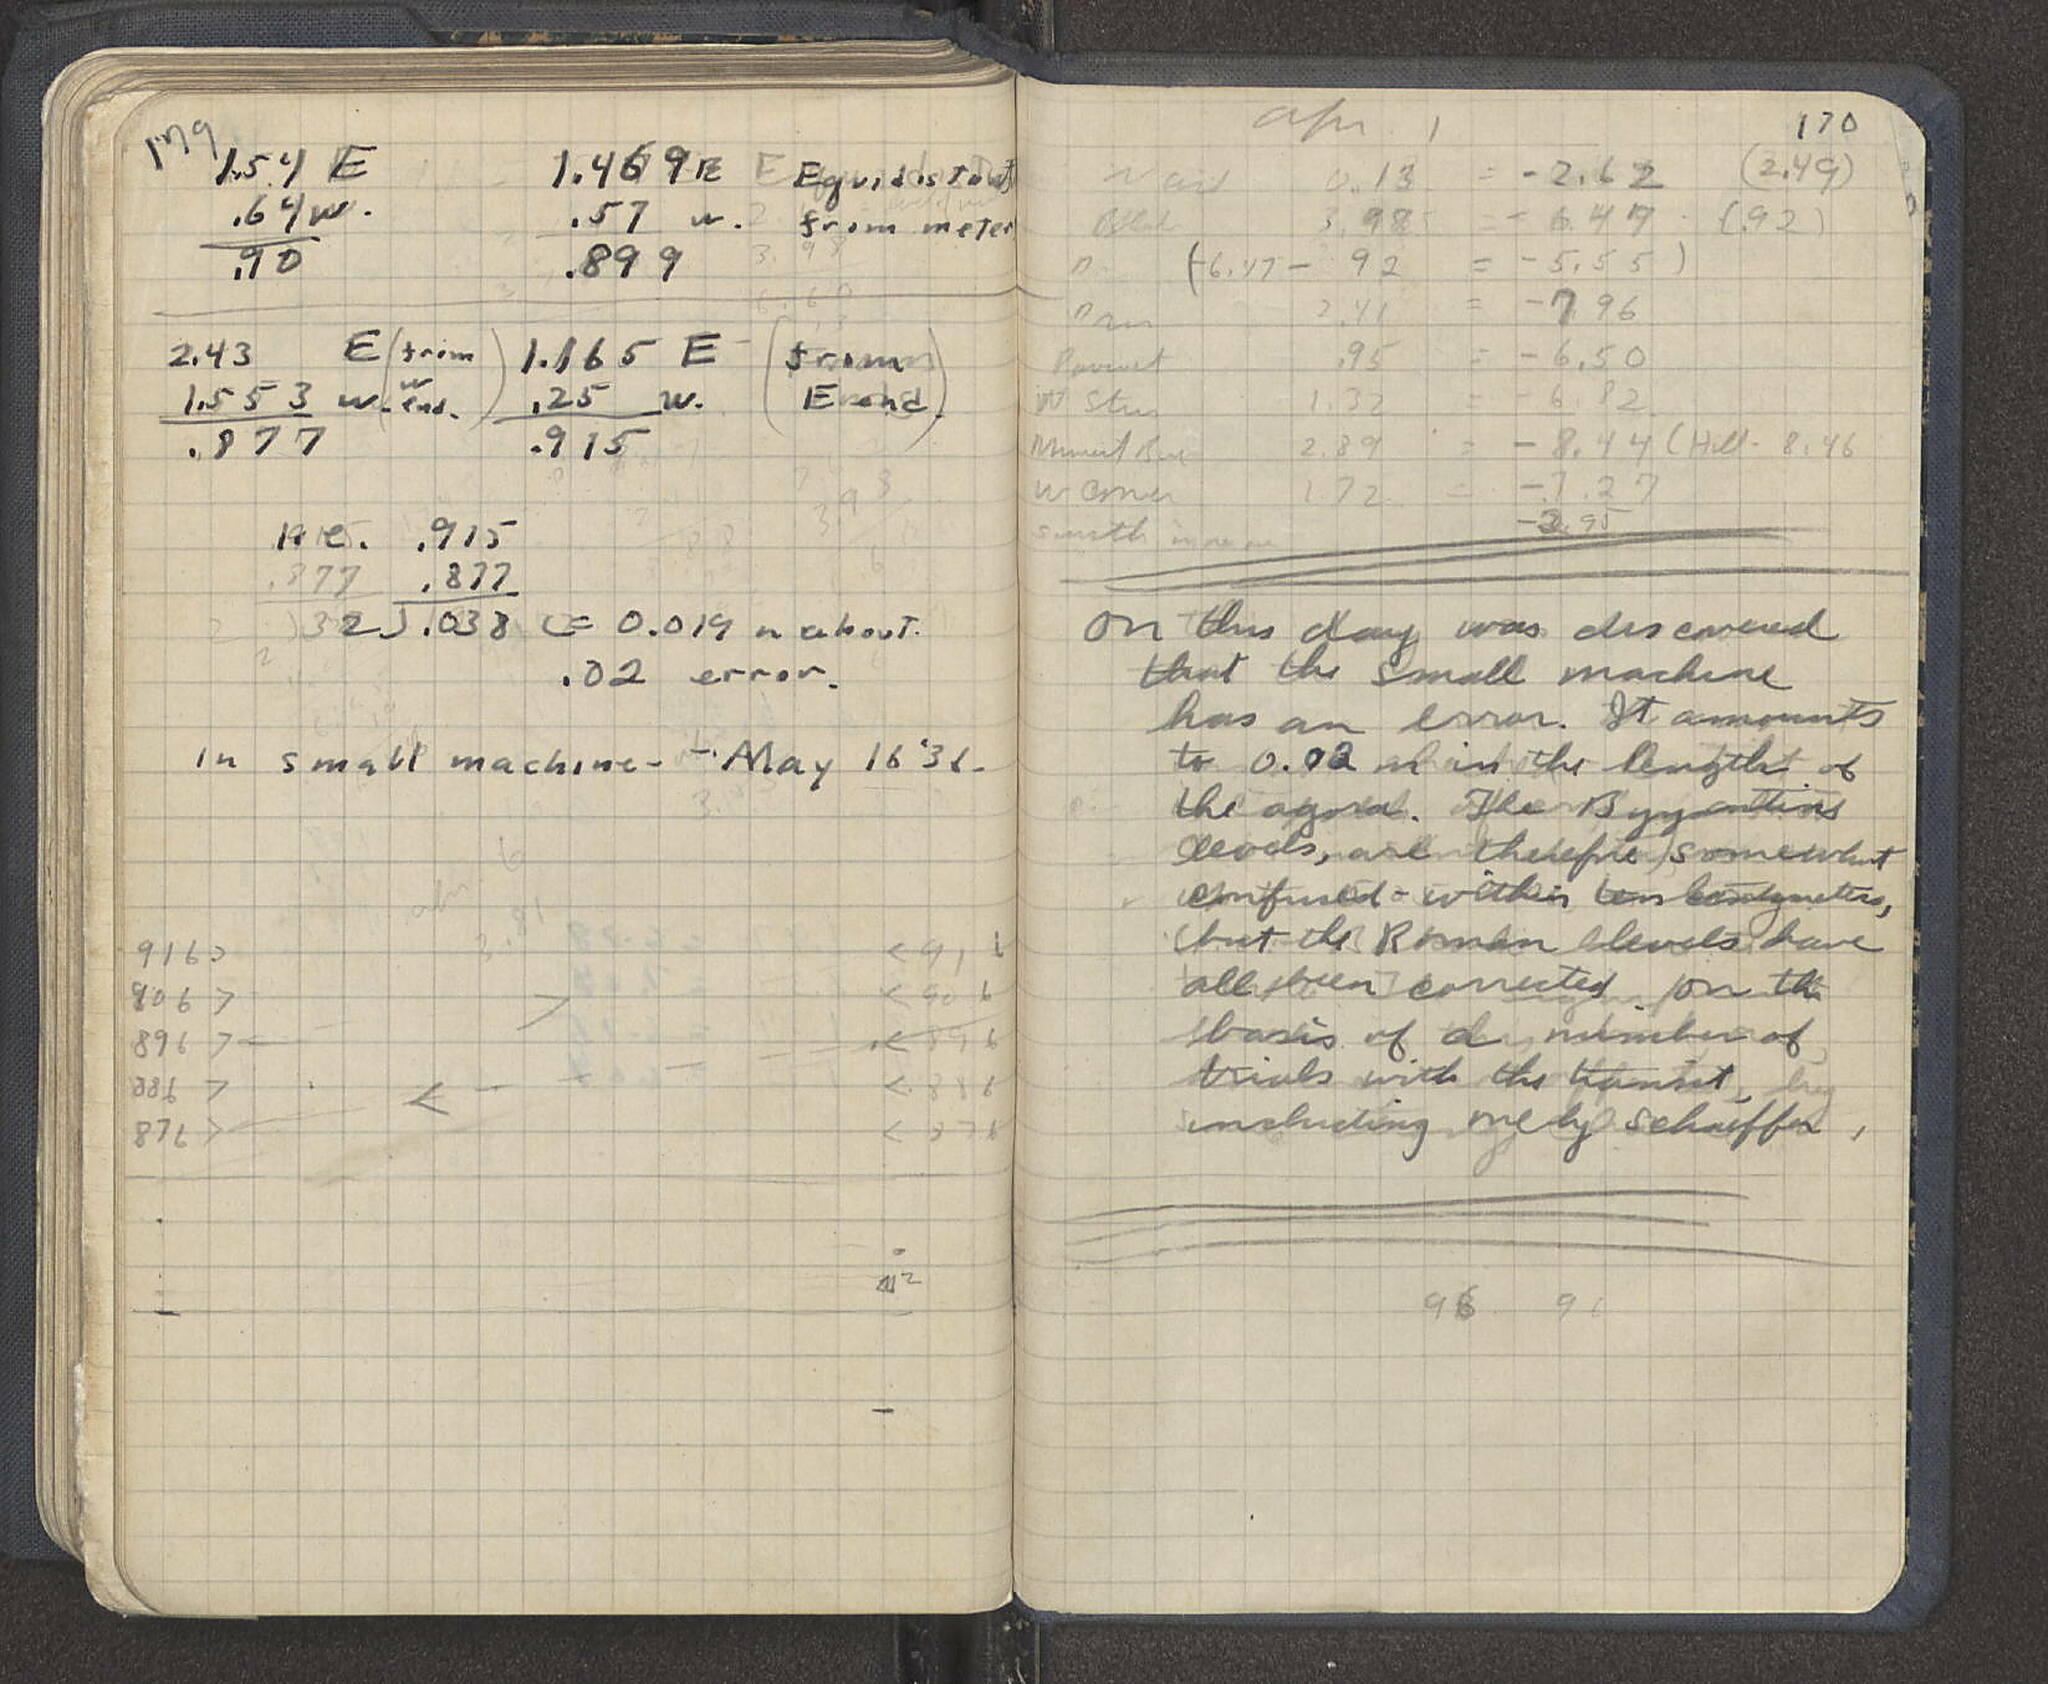 1.54 E
.64 w.
.90
1.469 E Equidistant
.57 w. from meter
.899
2.43 E (from
1.553 w. w end.)
.877
1.165 E (from
.25 w. E end)
.915
.915
.877 .877
2 ) .038 = 0.019 or about
.02 error.
in small machine - May 16 '36.
916 > < 916
906 > < 906
896 > < 896
886 > < 886
876 > < 876
Apr. 1 170
0.13 = -2.62 (2.49)
3.98 = -6.47 (.92)
(-6.47 - 92 = -5.55)
2.41 = -7.96
.95 = -6.50
1.32 = -6 82
2.89 = -8.44 (Hill - 8.46
W Corner 1.72 = -7.27
South
On this day was discovered
that the small machine
has an error. It amounts
to 0.02 m in the length of
the agora. The Byzantine
levels, are therefore, somewhat
confused - within ten centimeters,
but the Roman levels have
all been corrected on the
basis of a number of
trials with the transit,
including one by Schaeffer,
96 96